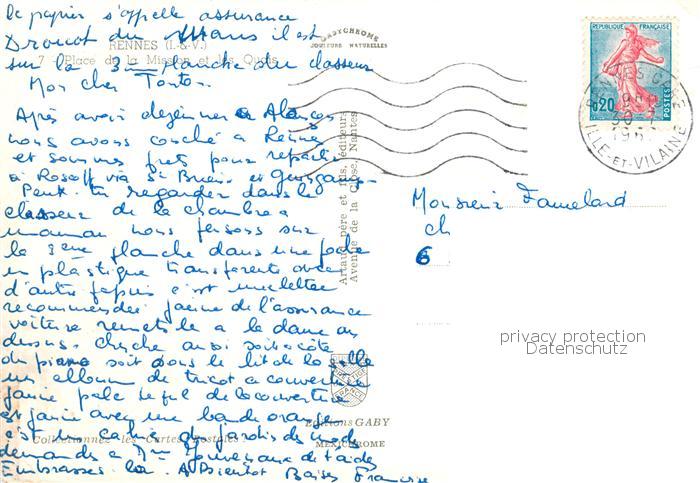 Ce papier s'appelle assurance
Drouot du Mans il est
sur la 3ème planche du classeur
RENNES (I.-&-V.)
7 - Place de la Mission et les Quais
Mon cher Tonton
Après avoir déjeuner à Alençon
nous avons couché à Reine
et sommes prets pour repartir
à Roscoff via St Brieuc et Guingamp
Peut-tu regarder dans le
classeur de la chambre a
maman nous pensons sur
la 3ème planche dans une poche
en plastique transparente avec
d'autre papiers c'est une lettre
recommendée jaune de l'assurance
voiture remets le a la dame au
dessus cherche aussi soit a côté
du piano soit sous le lit de la salle
un album de tricot a couverture
jaune pale le fil de la couverture
est jaune avec une bande orange
c'est un cahier de jardin des modes
demandes a Mme Jouveneaux de t'aider
Embrasses-la. A Bientot Baises Francise
MEXICHROME
Editions GABY
Collectionnez les Cartes Postales
Artaud père et fils, éditeurs
Avenue de la Close, Nantes
GABYCHROME
COULEURS NATURELLES
REPUBLIQUE FRANÇAISE
0,20
POSTES
RENNES GARE
ILLE-ET-VILAINE
Monsieur Famelard
ch
6
privacy protection
Datenschutz